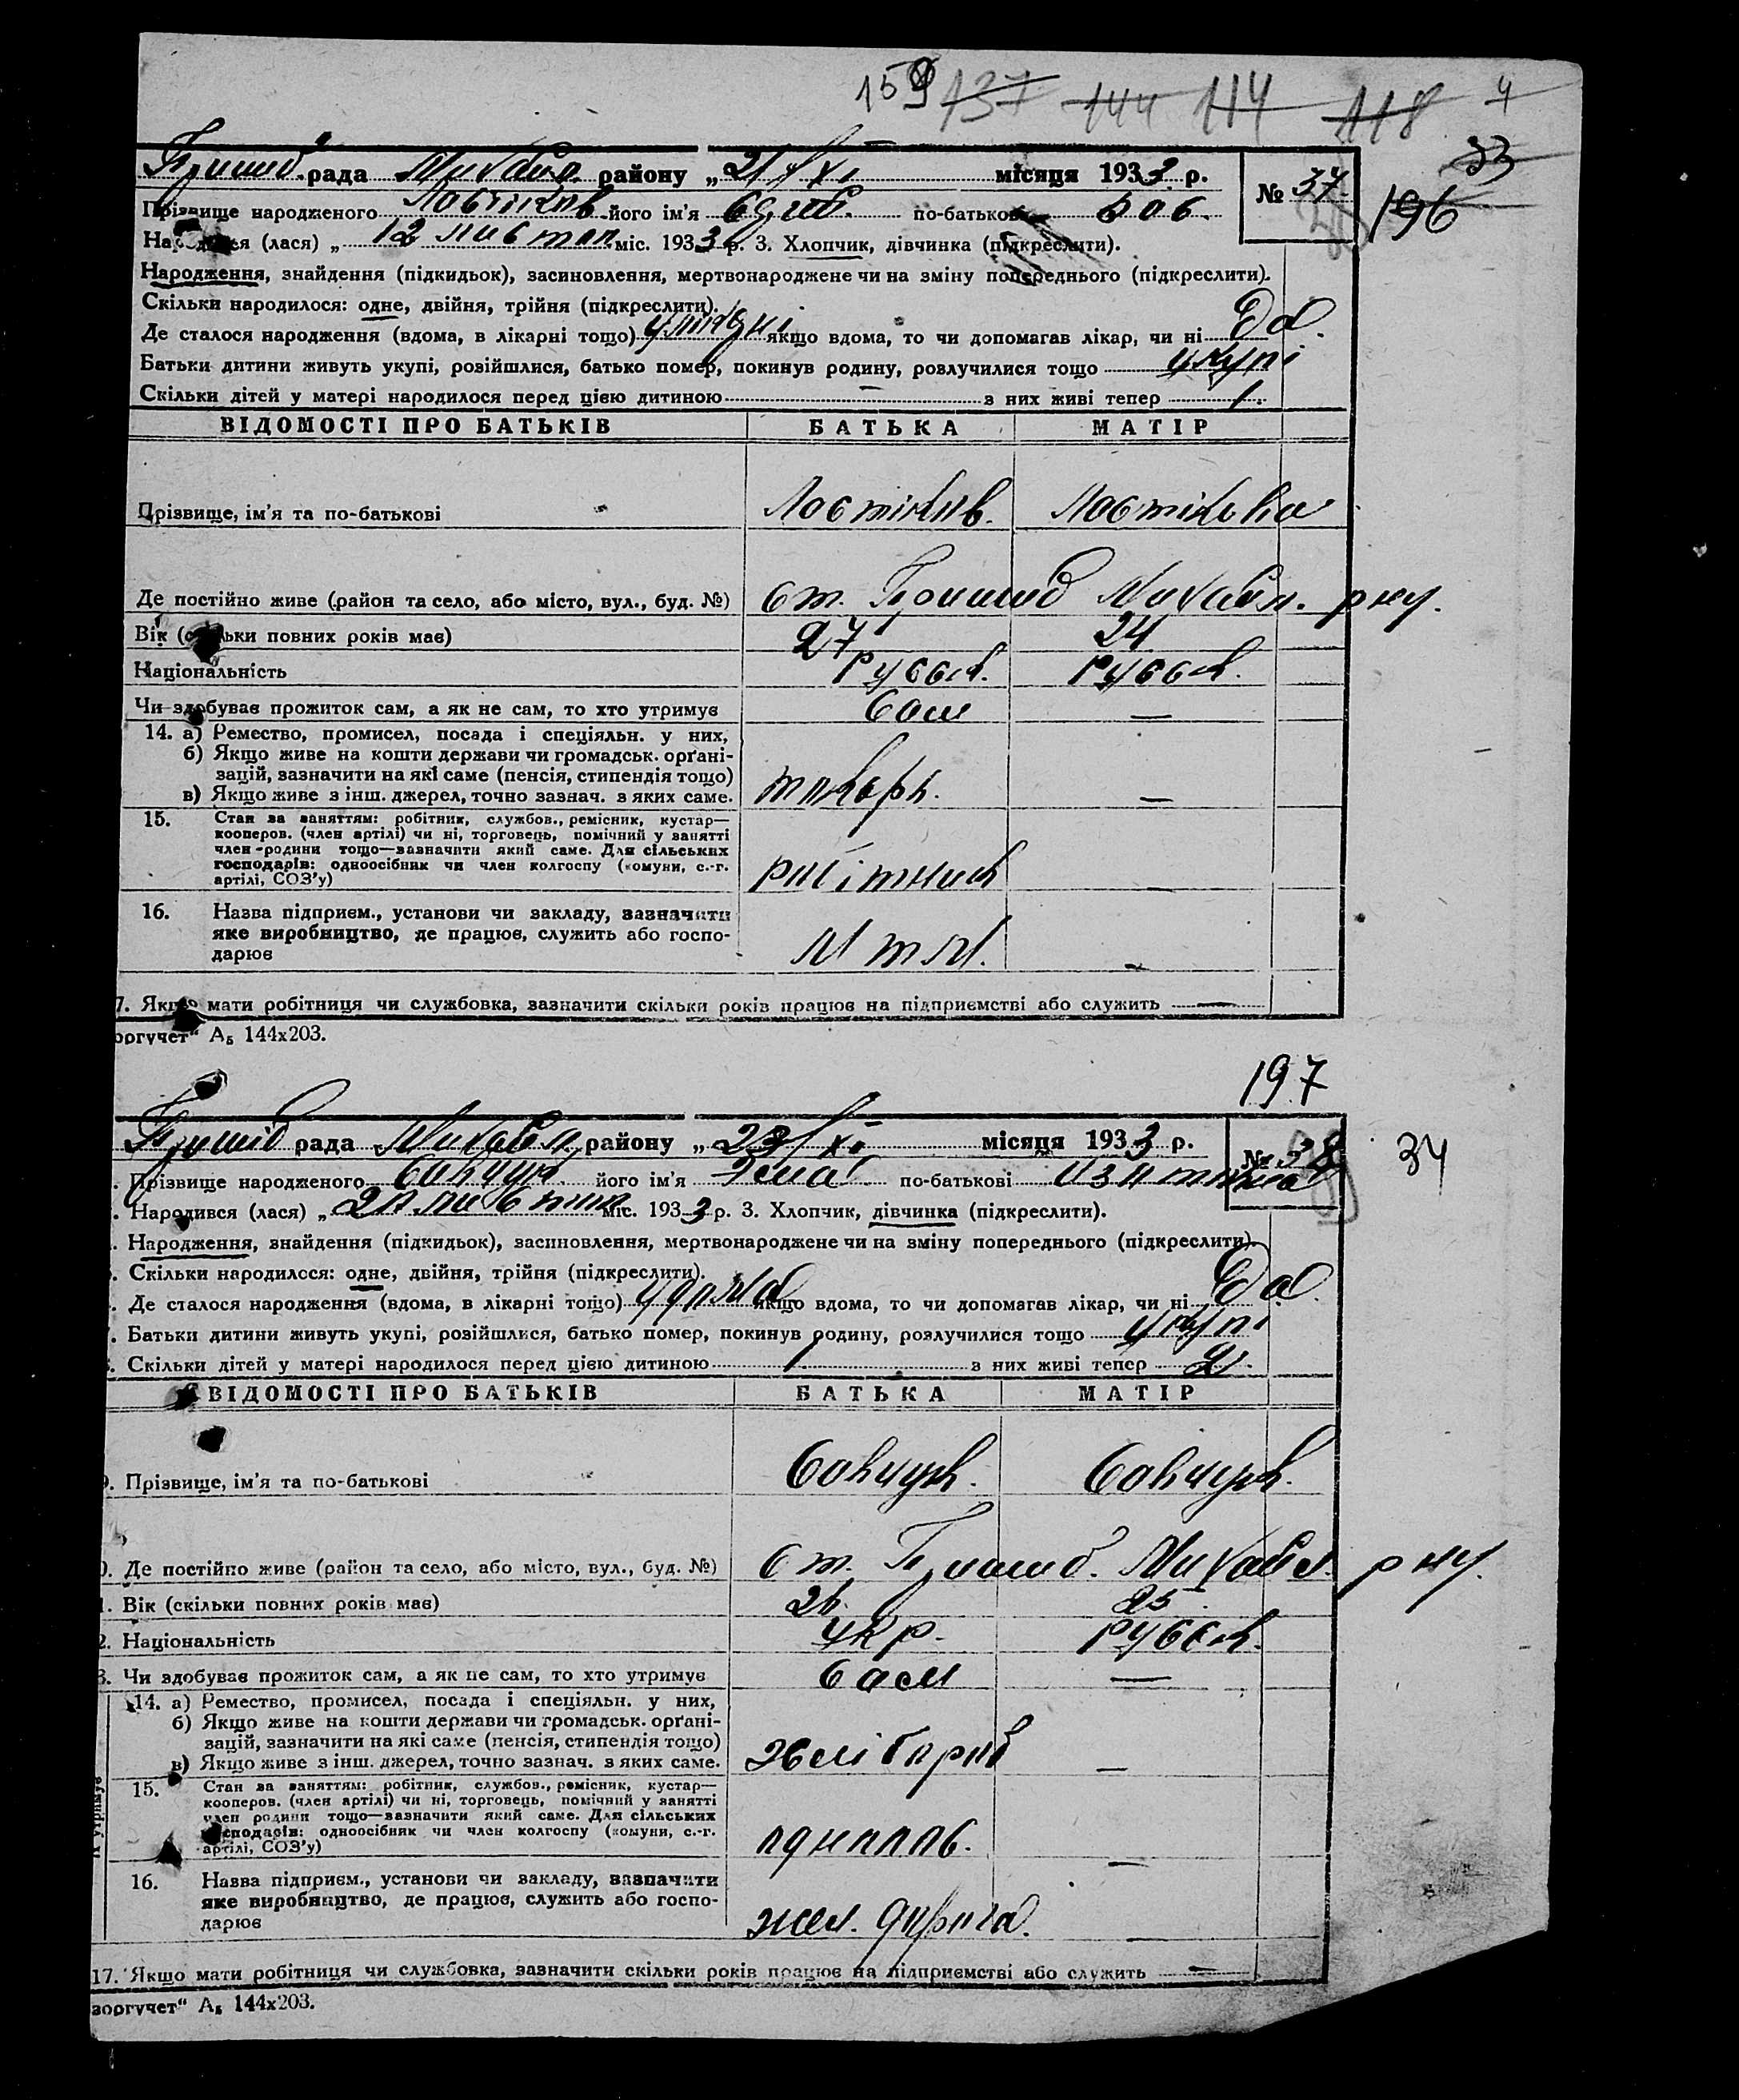 159 137 144 114 118 4
33
Пришиб. рада Михайл. району „ 21/XI місяця 1933 р. № 37
196
Прізвище народженого його ім'я по-батькові
Народився (лася) „ 12 листоп. міс. 1933 р. 3. Хлопчик, дівчинка (підкреслити).
Народження, знайдення (підкидьок), засиновлення, мертвонароджене чи на зміну попереднього (підкреслити).
Скільки народилося: одне, двійня, трійня (підкреслити).
Де сталося народження (вдома, в лікарні тощо) якщо вдома, то чи допомагав лікар, чи ні Да.
Батьки дитини живуть укупі, розійшлися, батько помер, покинув родину, розлучилися тощо укупі
Скільки дітей у матері народилося перед цією дитиною — з них живі тепер 1.
ВІДОМОСТІ ПРО БАТЬКІВ БАТЬКА МАТІР
Прізвище, ім'я та по-батькові
Де постійно живе (район та село, або місто, вул., буд. №) ст. Пришиб Михайл. р-ну.
Вік (скільки повних років має) 27 24
Національність русск. русск.
Чи здобуває прожиток сам, а як не сам, то хто утримує сам —
14. а) Ремество, промисел, посада і спеціяльн. у них,
б) Якщо живе на кошти держави чи громадськ. орґані-
зацій, зазначити на які саме (пенсія, стипендія тощо)
в) Якщо живе з інш. джерел, точно зазнач. з яких саме. токарь. —
15. Стан за заняттям: робітник, службов., ремісник, кустар—
кооперов. (член артілі) чи ні, торговець, помічний у занятті
член родини тощо—зазначити який саме. Для сільських
господарів: одноосібник чи член колгоспу (комуни, с.-г.
артілі, СОЗ'у) робітник —
16. Назва підприєм., установи чи закладу, зазначити
яке виробництво, де працює, служить або госпо-
дарює МТМ. —
7. Якщо мати робітниця чи службовка, зазначити скільки років працює на підприємстві або служить —
оргучет" А₅ 144х203.
197
Пришиб рада Михайл. району „ 23/XI місяця 1933 р. № 38
34
Прізвище народженого Савчук його ім'я по-батькові
Народився (лася) „ міс. 1933 р. 3. Хлопчик, дівчинка (підкреслити).
Народження, знайдення (підкидьок), засиновлення, мертвонароджене чи на зміну попереднього (підкреслити).
Скільки народилося: одне, двійня, трійня (підкреслити).
Де сталося народження (вдома, в лікарні тощо) у дома якщо вдома, то чи допомагав лікар, чи ні Да.
Батьки дитини живуть укупі, розійшлися, батько помер, покинув родину, розлучилися тощо укупі
Скільки дітей у матері народилося перед цією дитиною 1 з них живі тепер 2.
ВІДОМОСТІ ПРО БАТЬКІВ БАТЬКА МАТІР
9. Прізвище, ім'я та по-батькові Савчук. Савчук.
0. Де постійно живе (район та село, або місто, вул., буд. №) ст. Пришиб. Михайл. р-ну.
1. Вік (скільки повних років має) 26. 25.
2. Національність укр. русск.
3. Чи здобуває прожиток сам, а як не сам, то хто утримує сам —
14. а) Ремество, промисел, посада і спеціяльн. у них,
б) Якщо живе на кошти держави чи громадськ. орґані-
зацій, зазначити на які саме (пенсія, стипендія тощо)
в) Якщо живе з інш. джерел, точно зазнач. з яких саме. хлібороб —
15. Стан за заняттям: робітник, службов., ремісник, кустар—
кооперов. (член артілі) чи ні, торговець, помічний у занятті
член родини тощо—зазначити який саме. Для сільських
господарів: одноосібник чи член колгоспу (комуни, с.-г.
артілі, СОЗ'у) —
16. Назва підприєм., установи чи закладу, зазначити
яке виробництво, де працює, служить або госпо-
дарює жел. дорога. —
17. Якщо мати робітниця чи службовка, зазначити скільки років працює на підприємстві або служить —
зоргучет" А₅ 144х203.